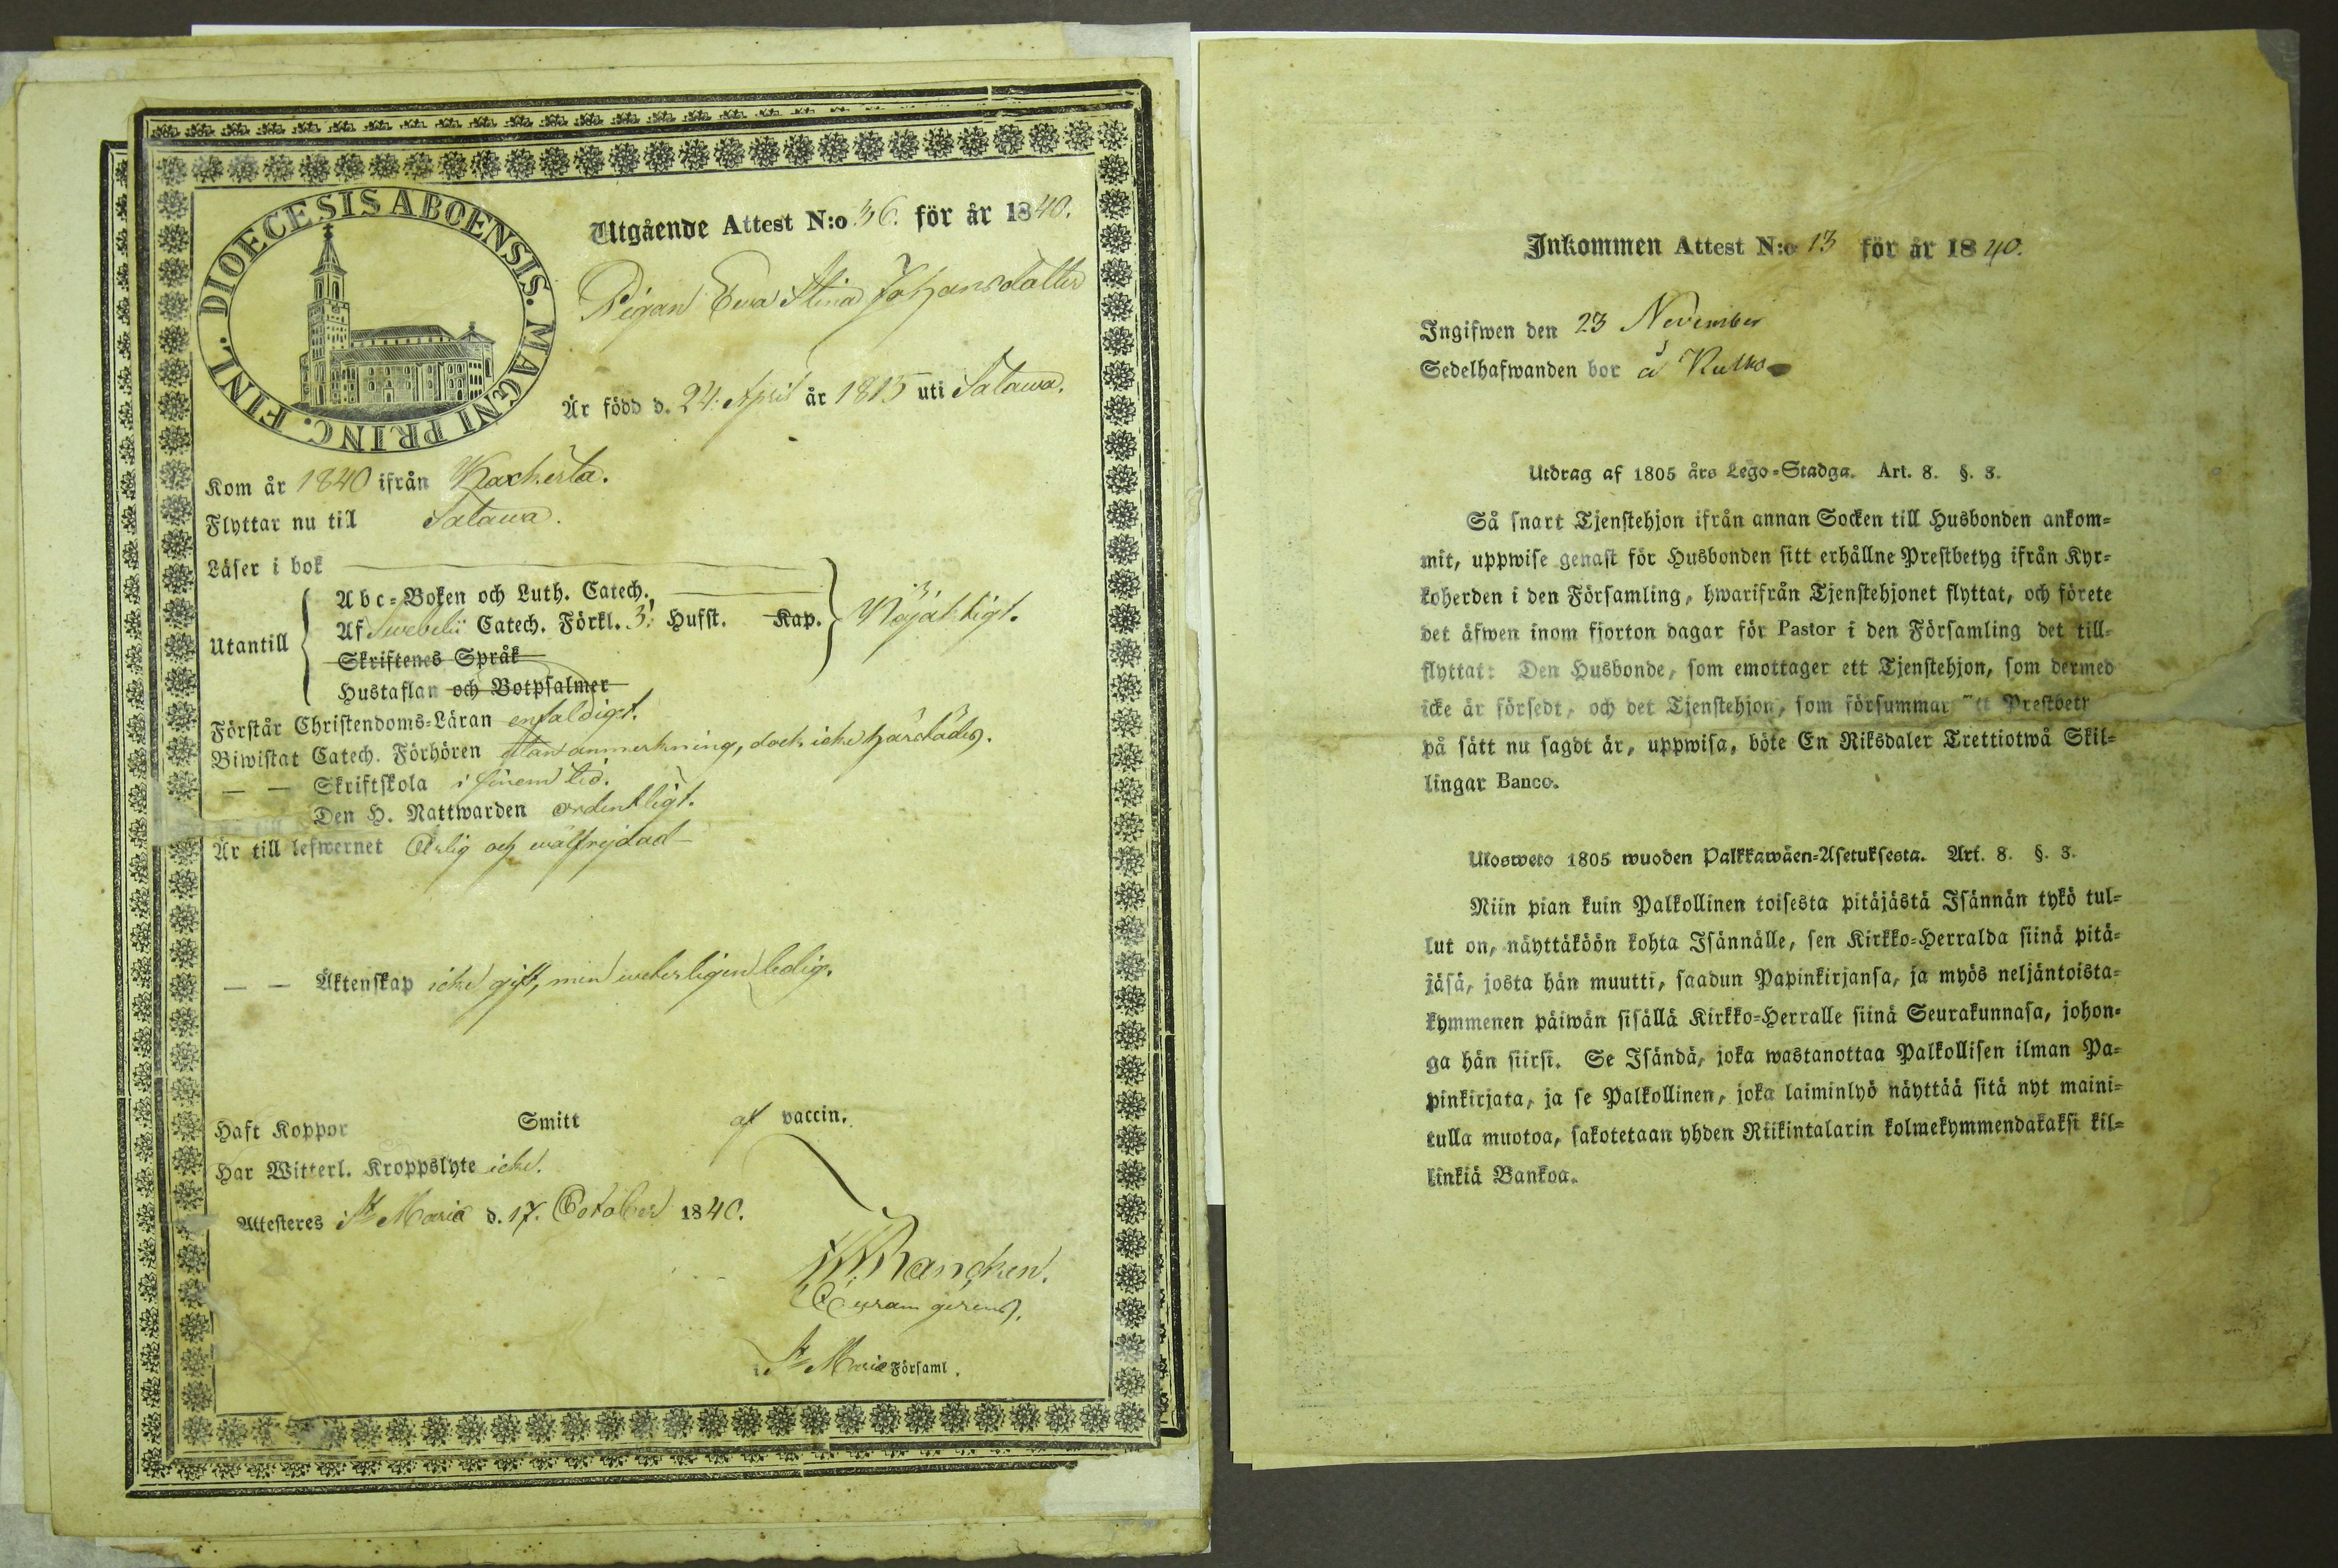 DIOECESIS ABOENSIS. MAGNI PRINC. FINL.
Utgående Attest N:o 36. för år 1840.
Pigan Ewa Stina Johansdotter
Är född d. 24. April år 1815 uti Satawa.
Kom år 1840 ifrån Kaxkerta.
Flyttar nu till Satawa.
Läser i bok
Utantill
Abc-Boken och Luth. Catech.
Af Swebelii Catech. Förkl. 3. Hufst. Kap.
Skriftenes Språk
Hustaflan och Botpsalmer
Nöjaktigt.
Förstår Christendoms-Läran enfaldigt.
Biwistat Catech. Förhören utan anmerkning, dock icke härstädes.
— — Skriftskola i sinom tid.
Den H. Nattwarden ordentligt.
Är till lefwernet Ärlig och wälfrejdad
— — Äktenskap icke gift, men wederligen ledig.
Haft Koppor Smitt af vaccin.
Har Witterl. Kroppslyte icke.
Attesteres i St Marie d. 17. October 1840.
Rancken.
Curam gerens.
i St Marie Församl.
Inkommen Attest N:o 13 för år 1840.
Ingifwen den 23 November
Sedelhafwanden bor å
Utdrag af 1805 års Lego-Stadga. Art. 8. §. 3.
Så snart Tjenstehjon ifrån annan Socken till Husbonden ankom-
mit, uppwise genast för Husbonden sitt erhållne Prestbetyg ifrån Kyr-
koherden i den Församling, hwarifrån Tjenstehjonet flyttat, och förete
det äfwen inom fjorton dagar för Pastor i den Församling det till-
flyttat: Den Husbonde, som emottager ett Tjenstehjon, som dermed
icke är försedt, och det Tjenstehjon, som försummar Prestbety
på sätt nu sagdt är, uppwisa, böte En Riksdaler Trettiotwå Skil-
lingar Banco.
Ulosweto 1805 wuoden Palkkawäen-Asetuksesta. Art. 8. §. 3.
Niin pian kuin Palkollinen toisesta pitäjästä Isännän tykö tul-
lut on, näyttäköön kohta Isännälle, sen Kirkko-Herralda siinä pitä-
jäsä, josta hän muutti, saadun Papinkirjansa, ja myös neljäntoista-
kymmenen päiwän sisällä Kirkko-Herralle siinä Seurakunnasa, johon-
ga hän siirsi. Se Isändä, joka wastanottaa Palkollisen ilman Pa-
pinkirjata, ja se Palkollinen, joka laiminlyö näyttää sitä nyt maini-
tulla muotoa, sakotetaan yhden Riikintalarin kolmekymmendakaksi kil-
linkiä Bankoa.